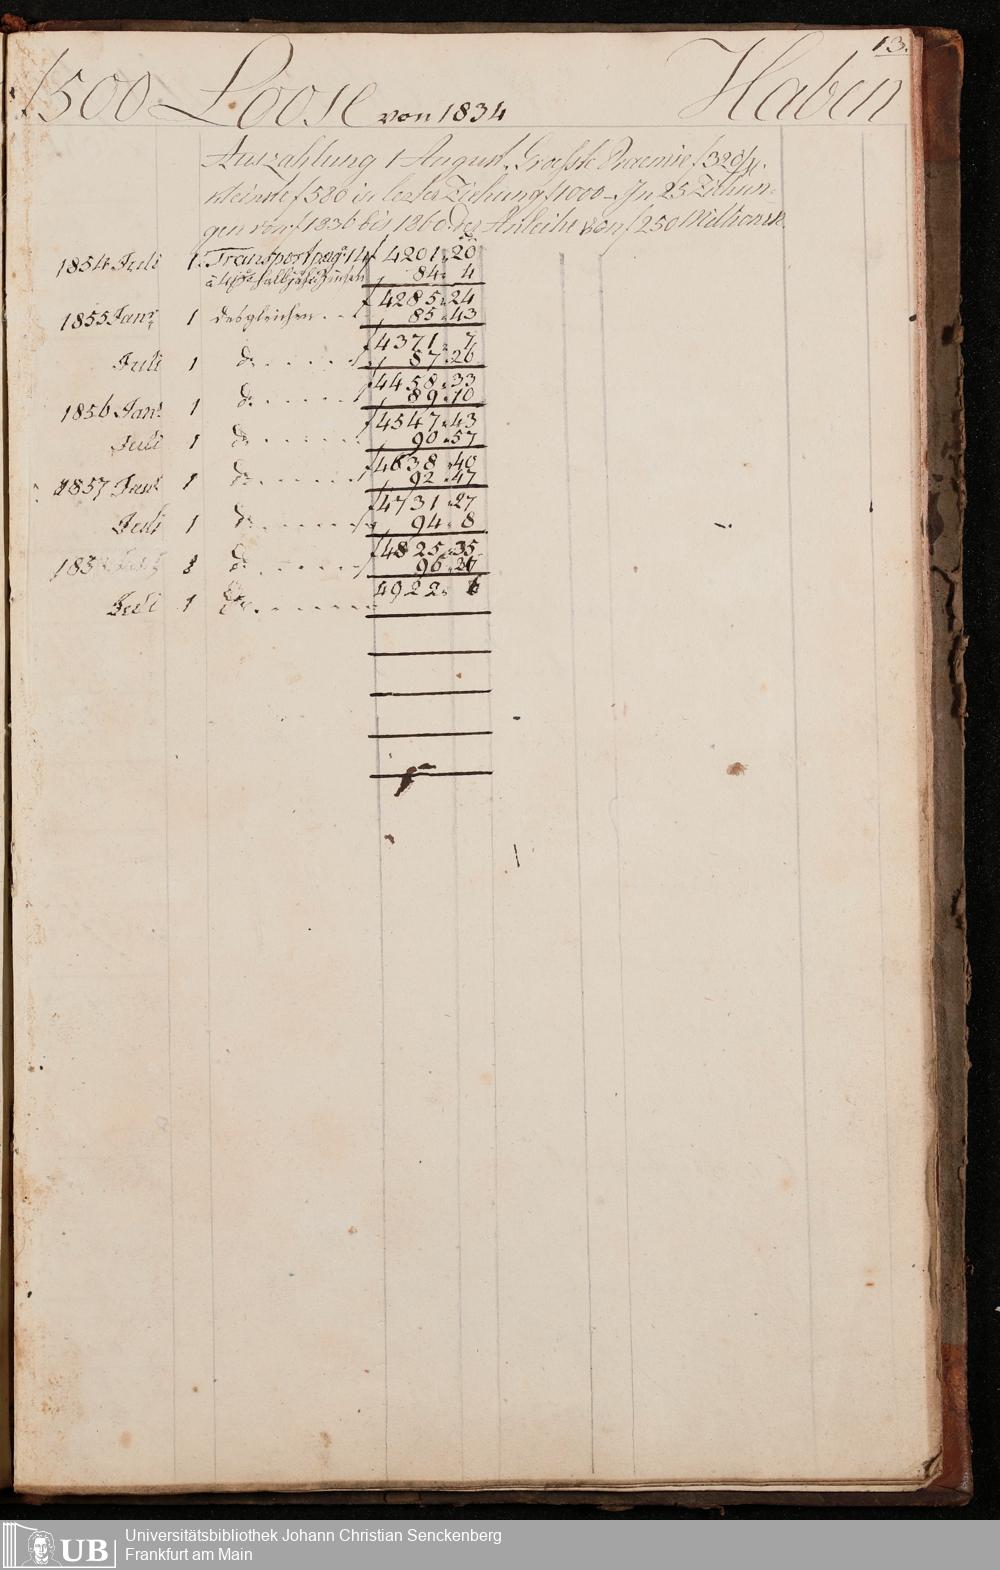 13.
f500 Loose von 1834 Haben
Auszahlung 1 August. Groeste Praemie f 320/M.
kleinste f 580 in lezter Ziehung f 1000 – In 25 Ziehun-
gen von 1836 bis 1860. der Anleihe von f 250 Millionen
1854 Juli 1. Transport pag. 14 f 4201.20
à 4 pCt halbjähr. Zinsen 84. 4
f 4285.24
1855 Janr 1 desgleichen . . 85.43
f 4371. 7
Juli 1 do . . . . . 87.26
f 4458.33
1856 Janr 1 do . . . . . . 89.10
f 4547.43
Juli 1 do . . . . . . 90.57
f 4638.40
1857 Janr 1 do . . . . . . 92.47
f 4731.27
Juli 1 do . . . . . 94. 8
f 4825.35
1858 1 do . . . . . . 96.
4922. 6
Juli 1 do . . . . . . .
UB
Universitätsbibliothek Johann Christian Senckenberg
Frankfurt am Main